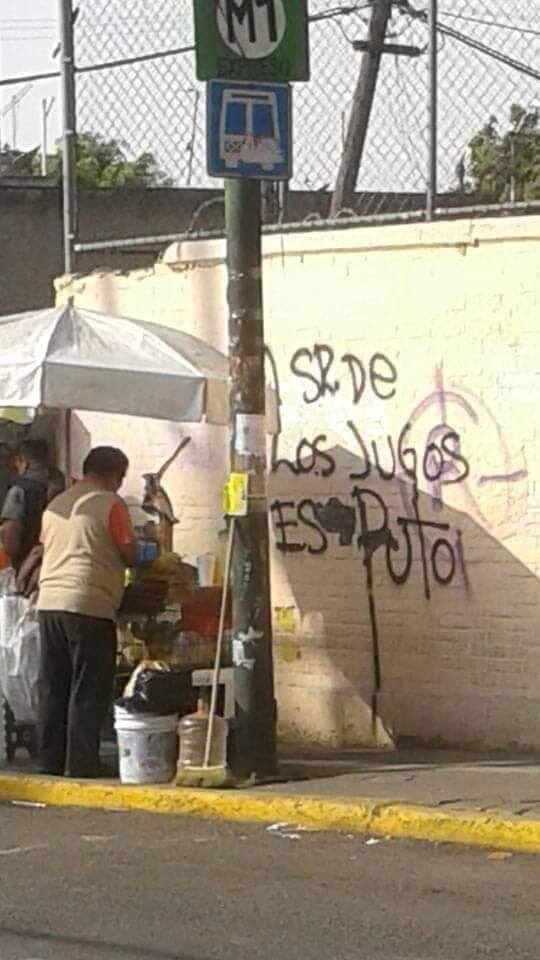 M1
EXPRESO
SR De
LOS JUGOS
ES PUTO